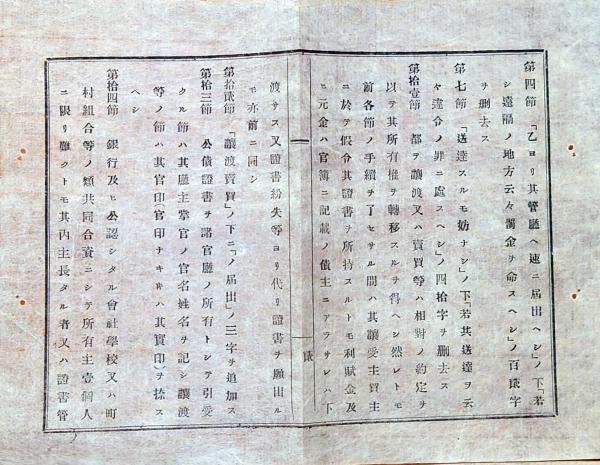 第四節 「乙ヨリ其管廳ヘ速ニ屆出ヘシ」ノ下「若
シ遠隔ノ地方云々罰金ヲ命スヘシ」ノ百貮字
ヲ删去ス
第七節 「送達スルモ妨ナシ」ノ下「若其送達ヲ云
々違令ノ罪ニ處スヘシ」ノ四拾字ヲ删去ス
第拾壹節 都テ讓渡又ハ賣買等ハ相對ノ約定ヲ
以テ其所有權ヲ轉移スルヲ得ヘシ然レトモ
前各節ノ手續ヲ了セサル間ハ其讓受主買主
ニ於テ假令其證書ヲ所持スルトモ利賦金及
ヒ元金ハ官簿ニ記載ノ債主ニアラサレハ下
渡サス又證書紛失等ヨリ代リ證書ヲ願出ル
モ亦前ニ同シ
第拾貮節 「讓渡賣買」ノ下ニ「ノ屆出」ノ三字ヲ追加ス
第拾三節 公債證書ヲ諸官廳ノ所有トシテ引受
クル節ハ其廳主掌官ノ官名姓名ヲ記シ讓渡
等ノ節ハ其官印(官印ナキハ其實印)ヲ捺ス
ヘシ
第拾四節 銀行及ヒ公認シタル會社學校又ハ町
村組合等ノ類共同合資ニシテ所有主壹個人
ニ限リ難クトモ其內主長タル者又ハ證書管
貮